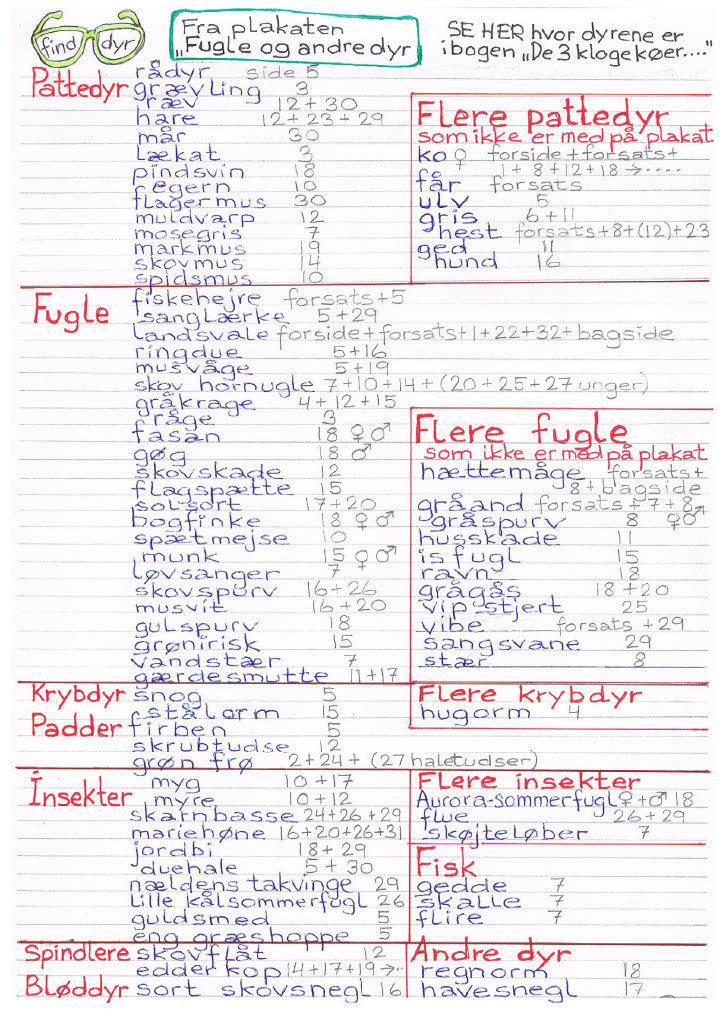 find dyr
Fra plakaten
„Fugle og andre dyr
SE HER hvor dyrene er
i bogen „De 3 kloge køer....“
Pattedyr
rådyr side 5
grævling 3
ræv 12+30
hare 12+23+29
mår 30
lækat 3
pindsvin 18
egern 10
flagermus 30
muldvarp 12
mosegris 7
markmus 19
skovmus 14
spidsmus 10
Flere pattedyr
som ikke er med på plakat
ko ♀ forside+forsats+
1+8+12+18→·····
får forsats
ulv 5
gris 6+11
hest forsats+8+(12)+23
ged 11
hund 16
Fugle
fiskehejre forsats+5
sanglærke 5+29
landsvale forside+forsats+1+22+32+bagside
ringdue 5+16
musvåge 5+19
skov hornugle 7+10+14+(20+25+27 unger)
gråkrage 4+12+15
råge 3
fasan 18 ♀ ♂
gøg 18 ♂
skovskade 12
flagspætte 15
solsort 17+20
bogfinke 18 ♀ ♂
spætmejse 10
munk 15 ♀ ♂
løvsanger 7
skovspurv 16+26
musvit 16+20
gulspurv 18
grønirisk 15
vandstær 7
gærdesmutte 11+17
Flere fugle
som ikke er med på plakat
hættemåge forsats+
8+bagside
gråand forsats+7+8
gråspurv 8 ♀♂
husskade 11
isfugl 15
ravn 18
grågås 18+20
vipstjert 25
vibe forsats+29
sangsvane 29
stær 8
Krybdyr
Padder
snog 5
stålorm 15
firben 5
skrubtudse 12
grøn frø 2+24+(27 haletudser)
Flere krybdyr
hugorm 4
Insekter
myg 10+17
myre 10+12
skarnbasse 24+26+29
mariehøne 16+20+26+31
jordbi 18+29
duehale 5+30
nældens takvinge 29
Lille kålsommerfugl 26
guldsmed 5
eng græshoppe 5
Flere insekter
Aurora-sommerfugl♀+♂ 18
flue 26+29
skøjteløber 7
Fisk
gedde 7
skalle 7
flire 7
Spindlere
skovflåt 12
edder kop 14+17+19→··
Bløddyr sort skovsnegl 16
Andre dyr
regnorm 18
havesnegl 17